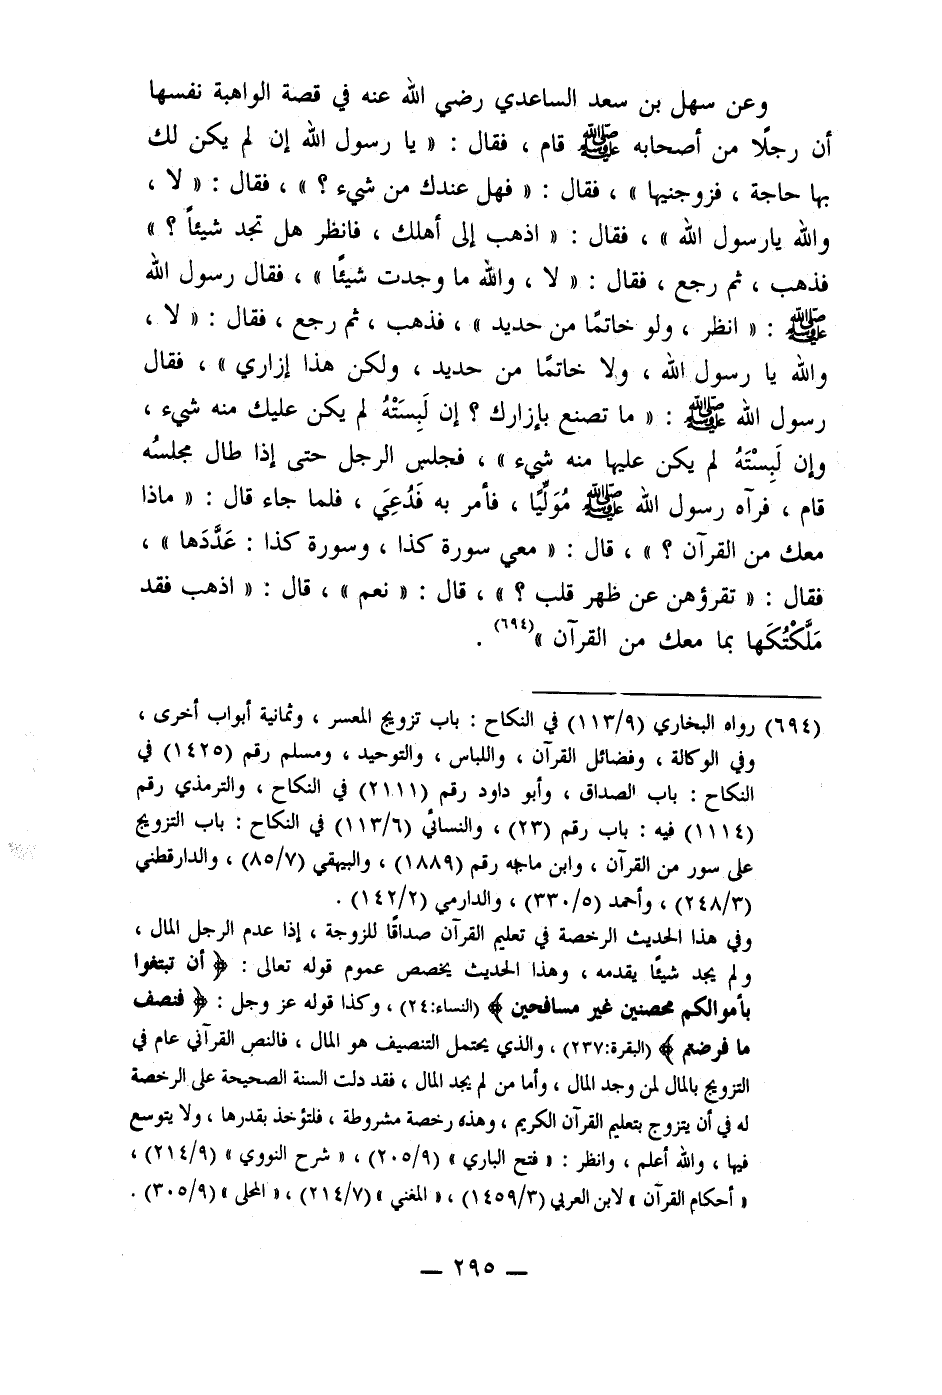 وعن سهل بن سعد الساعدي رضي الله عنه في قصة الواهبة نفسها
أن رجلًا من أصحابه ﷺ قام ، فقال : « يا رسول الله إن لم يكن لك
بها حاجة ، فزوجنيها » ، فقال : « فهل عندك من شيء ؟ » ، فقال : « لا ،
والله يارسول الله » ، فقال : « اذهب إلى أهلك ، فانظر هل تجد شيئاً ؟ »
فذهب ، ثم رجع ، فقال : « لا ، والله ما وجدت شيئًا » ، فقال رسول الله
ﷺ : « انظر ، ولو خاتمًا من حديد » ، فذهب ، ثم رجع ، فقال : « لا ،
والله يا رسول الله ، ولا خاتمًا من حديد ، ولكن هذا إزاري » ، فقال
رسول الله ﷺ : « ما تصنع بإزارك ؟ إن لَبِسَتْهُ لم يكن عليك منه شيء ،
وإن لَبِسْتَهُ لم يكن عليها منه شيء » ، فجلس الرجل حتى إذا طال مجلسُه
قام ، فرآه رسول الله ﷺ مُوَلِّيًا ، فأمر به فَدُعِيَ ، فلما جاء قال : « ماذا
معك من القرآن ؟ » ، قال : « معي سورة كذا ، وسورة كذا : عَدَّدَها » ،
فقال : « تقرؤهن عن ظهر قلب ؟ » ، قال : « نعم » ، قال : « اذهب فقد
مَلَّكْتُكَها بما معك من القرآن »(٦٩٤) .
(٦٩٤) رواه البخاري (١١٣/٩) في النكاح : باب تزويج المعسر ، وثمانية أبواب أخرى ،
وفي الوكالة ، وفضائل القرآن ، واللباس ، والتوحيد ، ومسلم رقم (١٤٢٥) في
النكاح : باب الصداق ، وأبو داود رقم (٢١١١) في النكاح ، والترمذي رقم
(١١١٤) فيه : باب رقم (٢٣) ، والنسائي (١١٣/٦) في النكاح : باب التزويج
على سور من القرآن ، وابن ماجه رقم (١٨٨٩) ، والبيهقي (٨٥/٧) ، والدارقطني
(٢٤٨/٣) ، وأحمد (٣٣٠/٥) ، والدارمي (١٤٢/٢) .
وفي هذا الحديث الرخصة في تعليم القرآن صداقًا للزوجة ، إذا عدم الرجل المال ،
ولم يجد شيئًا يقدمه ، وهذا الحديث يخصص عموم قوله تعالى : ﴿ أن تبتغوا
بأموالكم محصنين غير مسافحين ﴾ (النساء:٢٤) ، وكذا قوله عز وجل : ﴿ فنصف
ما فرضتم ﴾ (البقرة:٢٣٧) ، والذي يحتمل التنصيف هو المال ، فالنص القرآني عام في
التزويج بالمال لمن وجد المال ، وأما من لم يجد المال ، فقد دلت السنة الصحيحة على الرخصة
له في أن يتزوج بتعليم القرآن الكريم ، وهذه رخصة مشروطة ، فلتؤخذ بقدرها ، ولا يتوسع
فيها ، والله أعلم ، وانظر : « فتح الباري » (٢٠٥/٩) ، « شرح النووي » (٢١٤/٩) ،
« أحكام القرآن » لابن العربي (١٤٥٩/٣) ، « المغني » (٢١٤/٧) ، « المحلى » (٣٠٥/٩) .
— ٢٩٥ —